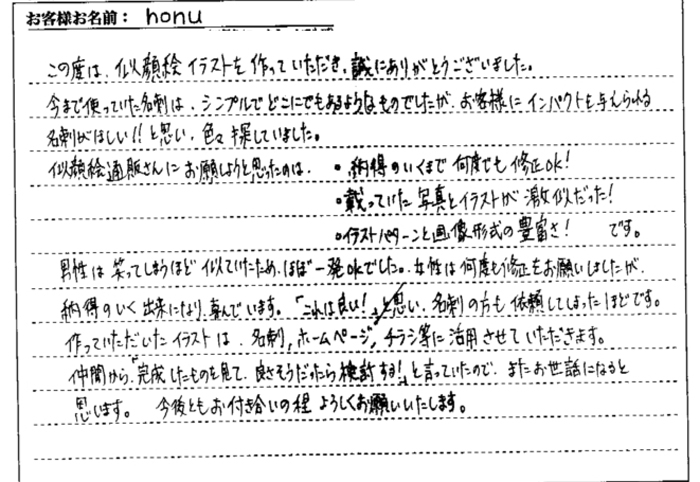 お客様お名前： honu
この度は、似顔絵イラストを作っていただき、誠にありがとうございました。
今まで使っていた名刺は、シンプルでどこにでもあるようなものでしたが、お客様にインパクトを与えられる
名刺がほしい!!と思い、色々探していました。
似顔絵通販さんにお願しようと思ったのは、 • 納得のいくまで何度でも修正OK!
• 載っていた写真とイラストが激似だった!
• イラストパターンと画像形式の豊富さ! です。
男性は笑ってしまうほど似ていたため、ほぼ一発OKでした。女性は何度も修正をお願いしましたが、
納得のいく出来になり、喜んでいます。「これは良い!」と思い、名刺の方も依頼してしまったほどです。
作っていただいたイラストは、名刺,ホームページ,チラシ等に活用させていただきます。
仲間から、「完成したものを見て、良さそうだったら検討する!」と言っていたので、またお世話になると
思います。 今後ともお付き合いの程よろしくお願いいたします。